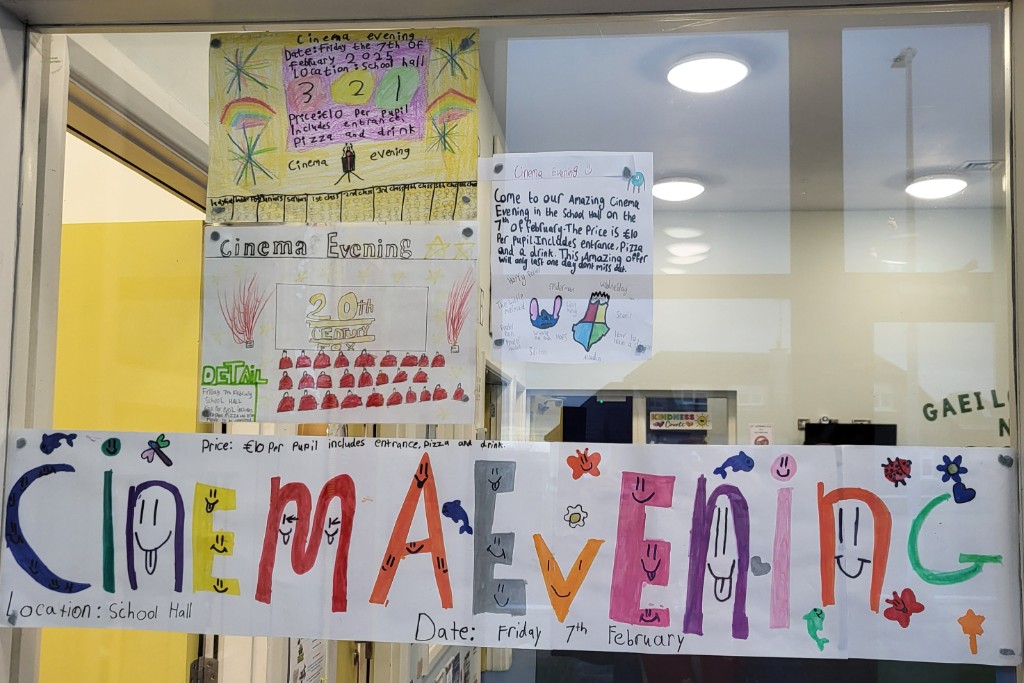 Cinema evening
Date: Friday the 7th of
February 2025
Location: School hall
3 2 1
Price: €10 per pupil
Includes entrance,
pizza and drink
Cinema evening
1st class 2nd class 3rd class
Cinema Evening
20th
Century
Fox
DETAIL
School Hall
Cinema Evening
Come to our Amazing Cinema
Evening in the School Hall on the
7th of February. The Price is €10
Per Pupil. Includes entrance, Pizza
and a drink. This Amazing offer
will only last one day dont miss out.
KINDNESS
Counts
GAEIL
N
Price: €10 Per Pupil includes entrance, Pizza and drink.
Cinema Evening
Location: School Hall
Date: Friday 7th February